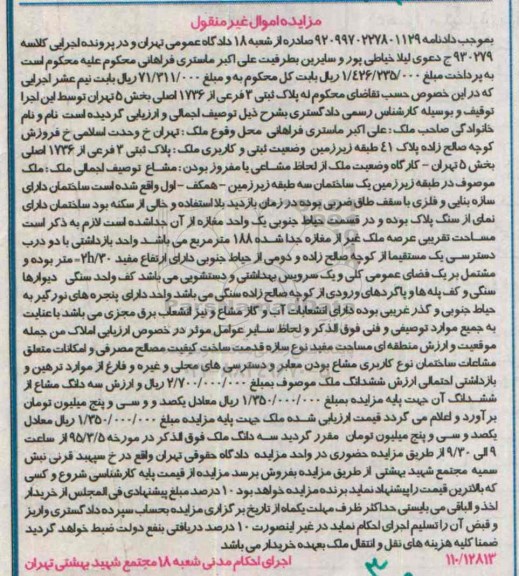 مزایده اموال غیر منقول
بموجب دادنامه ۹۲۰۹۹۷۰۲۲۷۸۰۱۱۲۹ صادره از شعبه ۱۸ دادگاه عمومی تهران و در پرونده اجرایی کلاسه
۹۳۰۲۷۹ ج دعوی لیلا خیاطی پور و سایرین بطرفیت علی اکبر ماستری فراهانی محکوم علیه محکوم است
به پرداخت مبلغ ۱/۴۲۶/۲۳۵/۰۰۰ ریال بابت کل محکوم به و مبلغ ۷۱/۳۱۱/۰۰۰ ریال بابت نیم عشر اجرایی
که در این خصوص حسب تقاضای محکوم له پلاک ثبتی ۳ فرعی از ۱۷۳۶ اصلی بخش ۵ تهران توسط این اجرا
توقیف و بوسیله کارشناس رسمی دادگستری بشرح ذیل توصیف اجمالی و ارزیابی گردیده است نام و نام
خانوادگی صاحب ملک : علی اکبر ماستری فراهانی محل وقوع ملک : تهران خ وحدت اسلامی خ فروزش
کوچه صالح زاده پلاک ۴۱ طبقه زیرزمین وضعیت ثبتی و کاربری ملک : پلاک ثبتی ۳ فرعی از ۱۷۳۶ اصلی
بخش ۵ تهران - کارگاه وضعیت ملک از لحاظ مشاعی یا مفروز بودن : مشاع توصیف اجمالی ملک : ملک
موصوف در طبقه زیرزمین یک ساختمان سه طبقه زیرزمین - همکف - اول واقع شده است ساختمان دارای
سازه بنایی و فلزی با سقف طاق ضربی بوده در زمان بازدید بلا استفاده و خالی از سکنه بود ساختمان دارای
نمای از سنگ پلاک بوده و در قسمت حیاط جنوبی یک واحد مغازه از آن جدا شده است لازم به ذکر است
مساحت تقریبی عرصه ملک غیر از مغازه جدا شده ۱۸۸ متر مربع می باشد واحد بازداشتی با دو درب
دسترسی یک مستقیما از کوچه صالح زاده و دومی از حیاط جنوبی دارای ارتفاع مفید 2h/30- متر بوده و
مشتمل بر یک فضای عمومی کلی و یک سرویس بهداشتی و دستشویی می باشد کف واحد سنگی دیوارها
سنگی و کف پله ها و پاگردهای ورودی از کوچه صالح زاده سنگی می باشد واحد دارای پنجره های نورگیر به
حیاط جنوبی و گذر غربی بوده دارای انشعابات آب و گاز مشاع و نیز انشعاب برق مجزی می باشد با عنایت
به جمیع موارد توصیفی و فنی فوق الذکر و لحاظ سایر عوامل موثر در خصوص ارزیابی املاک من جمله
موقعیت و ارزش منطقه ای مساحت مفید نوع سازه قدمت ساخت کیفیت مصالح مصرفی و امکانات متعلق
مشاعات ساختمان نوع کاربری مشاع بودن معابر و دسترسی های محلی و غیره و فارغ از موارد ترهین و
بازداشتی احتمالی ارزش ششدانگ ملک موصوف بمبلغ ۲/۷۰۰/۰۰۰/۰۰۰ ریال و ارزش سه دانگ مشاع از
ششدانگ آن جهت پایه مزایده بمبلغ ۱/۳۵۰/۰۰۰/۰۰۰ ریال معادل یکصد و سی و پنج میلیون تومان
برآورد و اعلام می گردد قیمت ارزیابی شده ملک جهت پایه مزایده مبلغ ۱/۳۵۰/۰۰۰/۰۰۰ ریال معادل
یکصد و سی و پنج میلیون تومان مقرر گردید سه دانگ ملک فوق الذکر در مورخه ۹۵/۳/۵ از ساعت
۹ الی ۹/۳۰ از طریق مزایده حضوری در واحد مزایده دادگاه حقوقی تهران واقع در خ سپهبد قرنی نبش
سمیه مجتمع شهید بهشتی از طریق مزایده بفروش برسد مزایده از قیمت پایه کارشناسی شروع و کسی
که بالاترین قیمت را پیشنهاد نماید برنده مزایده خواهد بود ۱۰ درصد مبلغ پیشنهادی فی المجلس از خریدار
اخذ و الباقی می بایستی حداکثر ظرف مهلت یکماه از تاریخ برگزاری مزایده بحساب سپرده دادگستری واریز
و قبض آن را تسلیم اجرای احکام نماید در غیر اینصورت ۱۰ درصد دریافتی بنفع دولت ضبط خواهد گردید
ضمنا کلیه هزینه های نقل و انتقال ملک بعهده خریدار می باشد
۱۱۰/۱۲۸۱۳ اجرای احکام مدنی شعبه ۱۸ مجتمع شهید بهشتی تهران